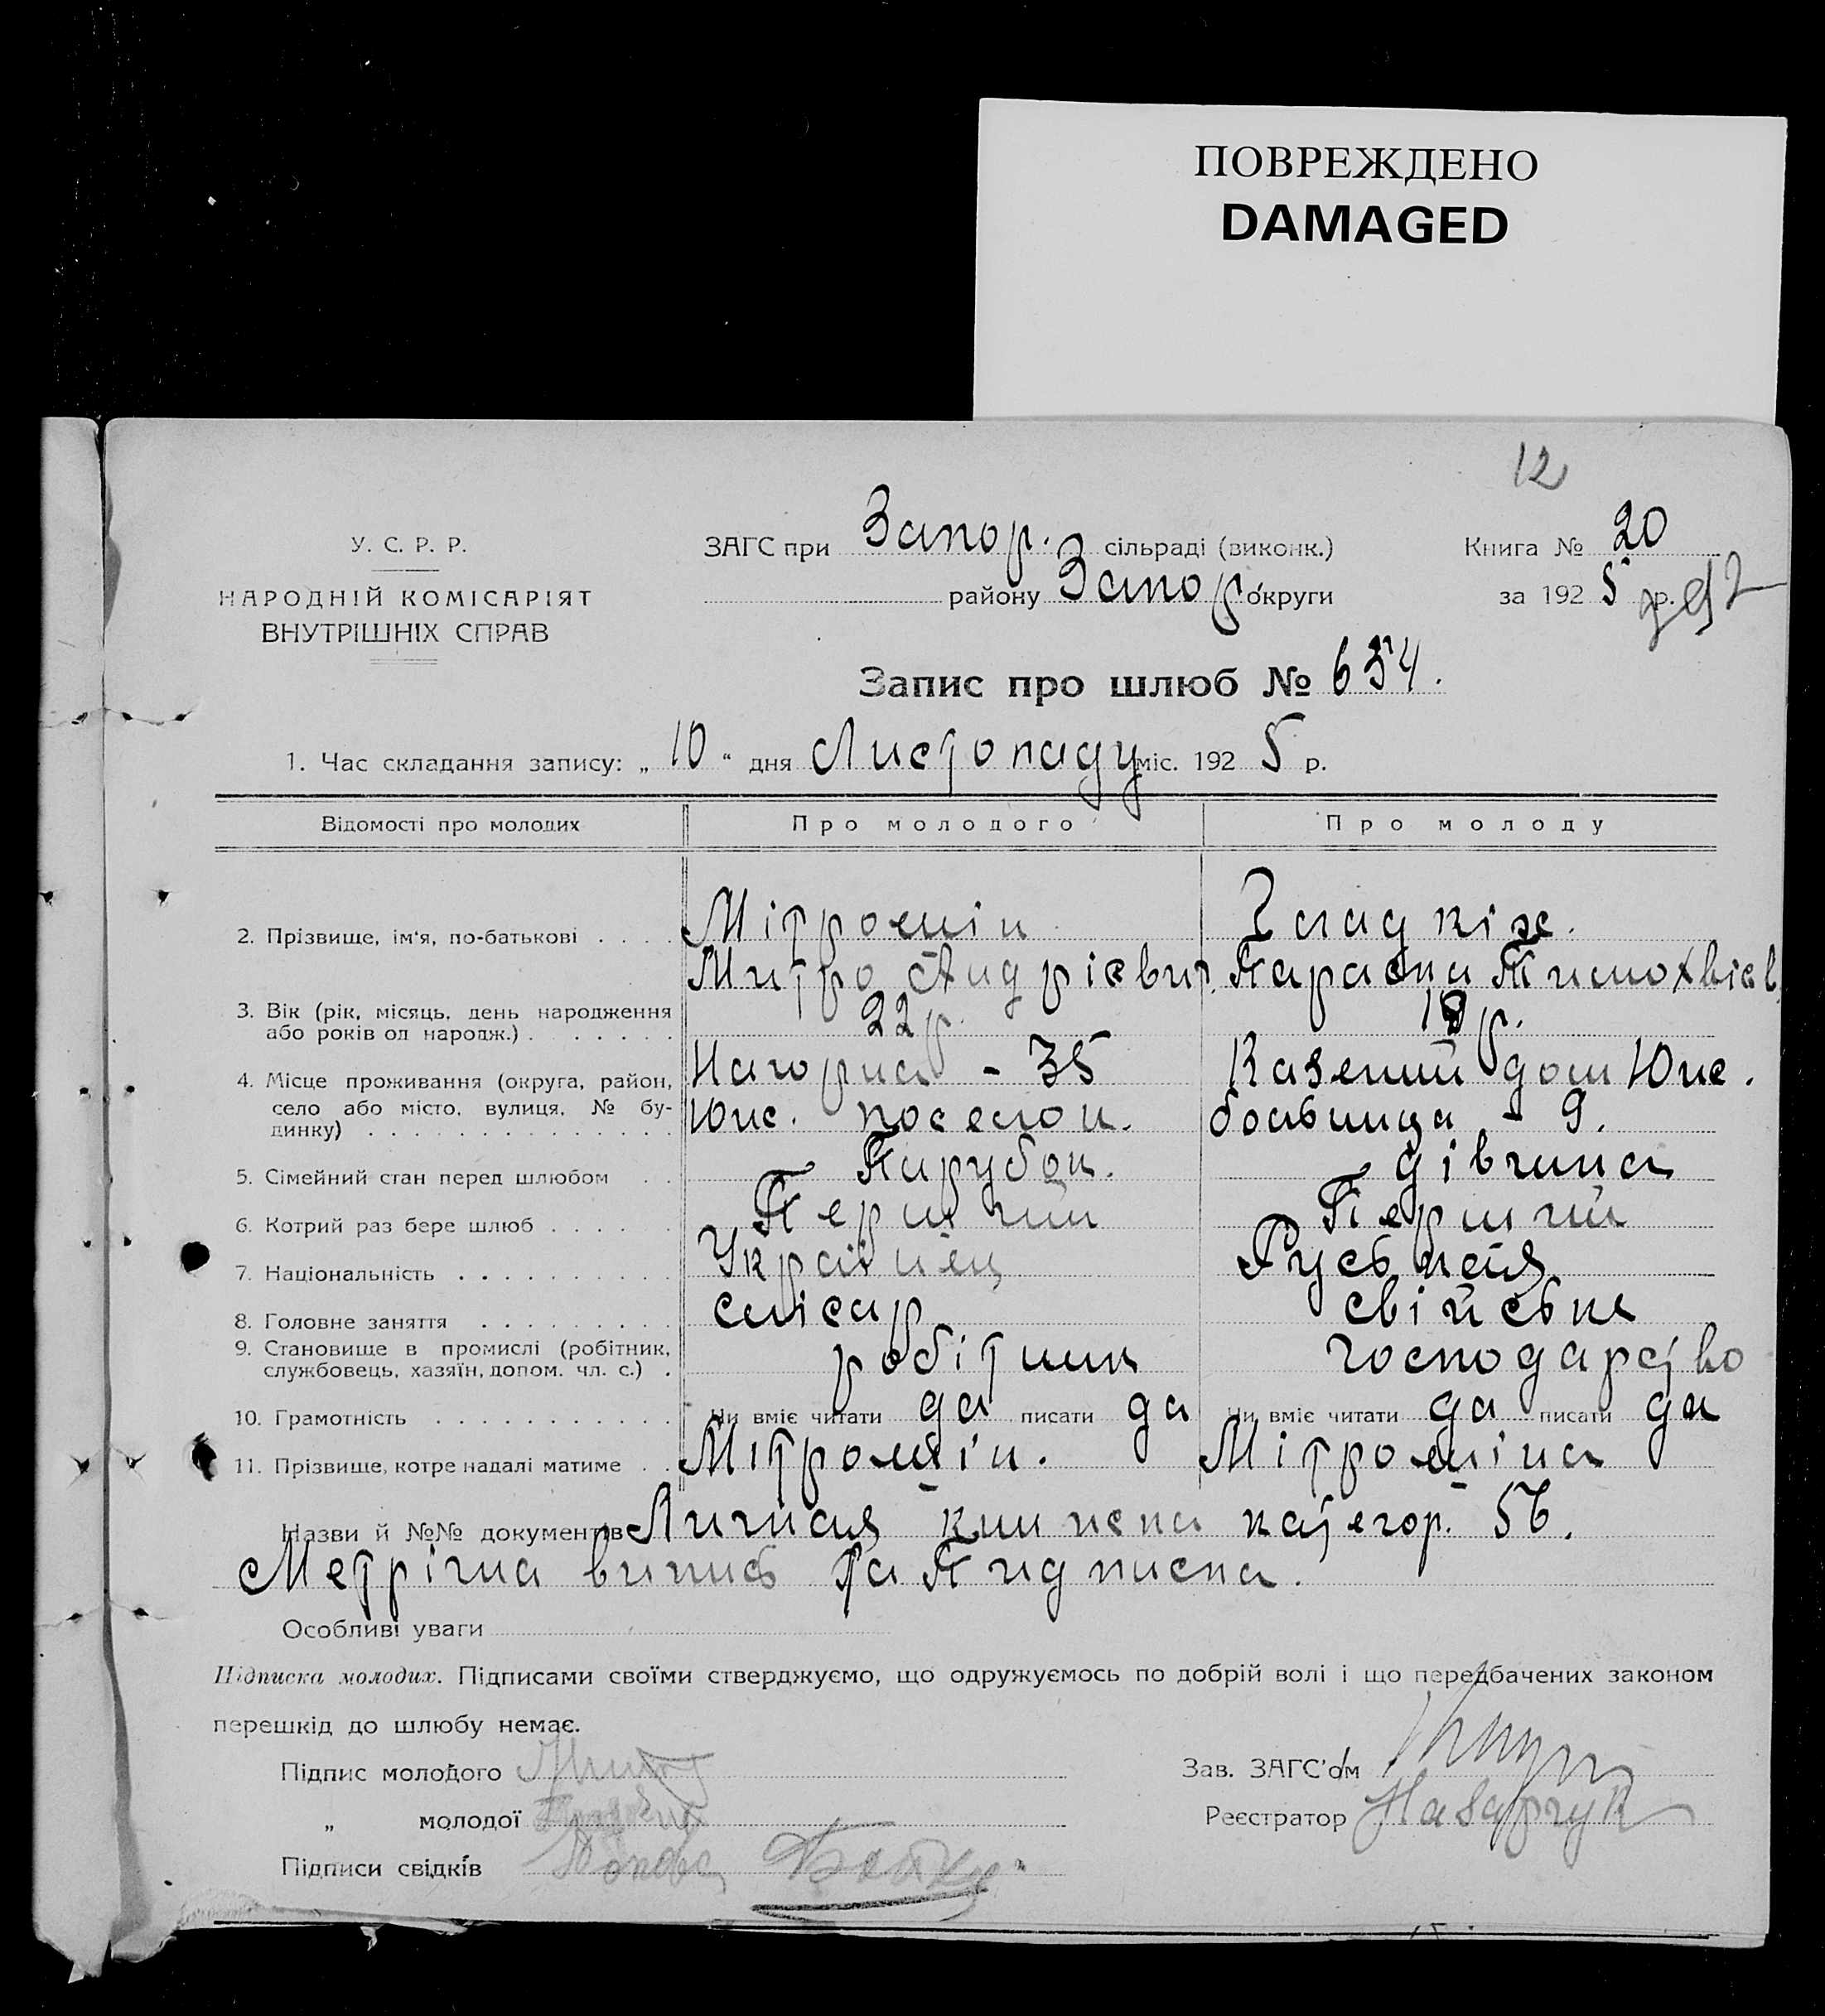 ПОВРЕЖДЕНО
DAMAGED
12
У. С. Р. Р.
НАРОДНІЙ КОМІСАРІЯТ
ВНУТРІШНІХ СПРАВ
ЗАГС при Запор. сільраді (виконк.)
району Запор. округи
Книга № 20
за 192 5 р.
Запис про шлюб № 634.
1. Час складання запису: „ 10 “ дня Листопаду міс. 192 5 р.
Відомості про молодих Про молодого Про молоду
2. Прізвище, ім'я, по-батькові . . . . Мітрошін Гладкіх.
Митро Андрієвич. Параска Тимохвієв.
3. Вік (рік, місяць, день народження
або років од народж.) . . . . . . 22 р. 18 р.
4. Місце проживання (округа, район,
село або місто, вулиця, № бу-
динку) . . . . . . . . . . . . . . .
Нагорна - 35
Юж. поселок.
Казений дом Юж.
больница - 9.
5. Сімейний стан перед шлюбом . . Парубок. дівчина
6. Котрий раз бере шлюб . . . . . . Перший Перший
7. Національність . . . . . . . . . . Українец Руська
8. Головне заняття . . . . . . . . . слісар свійське
9. Становище в промислі (робітник,
службовець, хазяїн, допом. чл. с.) . робітник господарство
10. Грамотність . . . . . . . . . . . Чи вміє читати да писати да Чи вміє читати да писати да
11. Прізвище, котре надалі матиме . . Мітрошін. Мітрошіна
Назви й №№ документів Личная книжка категор.
Метрічна випись та Підписка.
Особливі уваги
Підписка молодих. Підписами своїми стверджуємо, що одружуємось по добрій волі і що передбачених законом
перешкід до шлюбу немає.
Підпис молодого
„ молодої
Підписи свідків
Зав. ЗАГС'ом
Реєстратор Назарчук